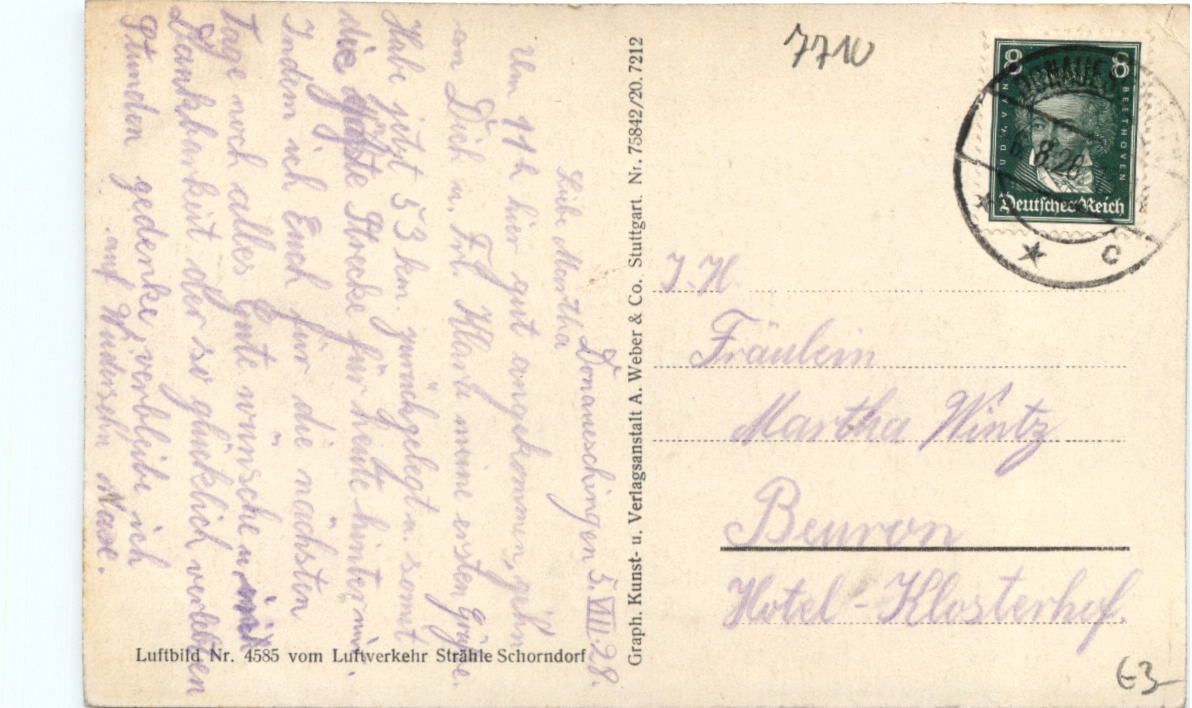 Donaueschingen 5. VIII. 28.
Liebe Martha
Um 11h hier gut angekommen, gehn
an Dich u. Frl. Klara meine ersten Grüße.
Habe jetzt 53 km zurückgelegt u. somit
die größte Strecke für heute hinter mir.
Indem ich Euch für die nächsten
Tage noch alles Gute wünsche u. mit
Dankbarkeit der so glücklich verlebten
Stunden gedenke, verbleibe ich
auf Wiedersehn Maxe.
Luftbild Nr. 4585 vom Luftverkehr Strähle Schorndorf
Graph. Kunst- u. Verlagsanstalt A. Weber & Co. Stuttgart. Nr. 75842/20. 7212
7710
8 8
LUDW. VAN
BEETHOVEN
Deutsches Reich
DONAUES
6.8.28
* * c
Fräulein
Martha Wintz
Beuron
Hotel - Klosterhof.
€3